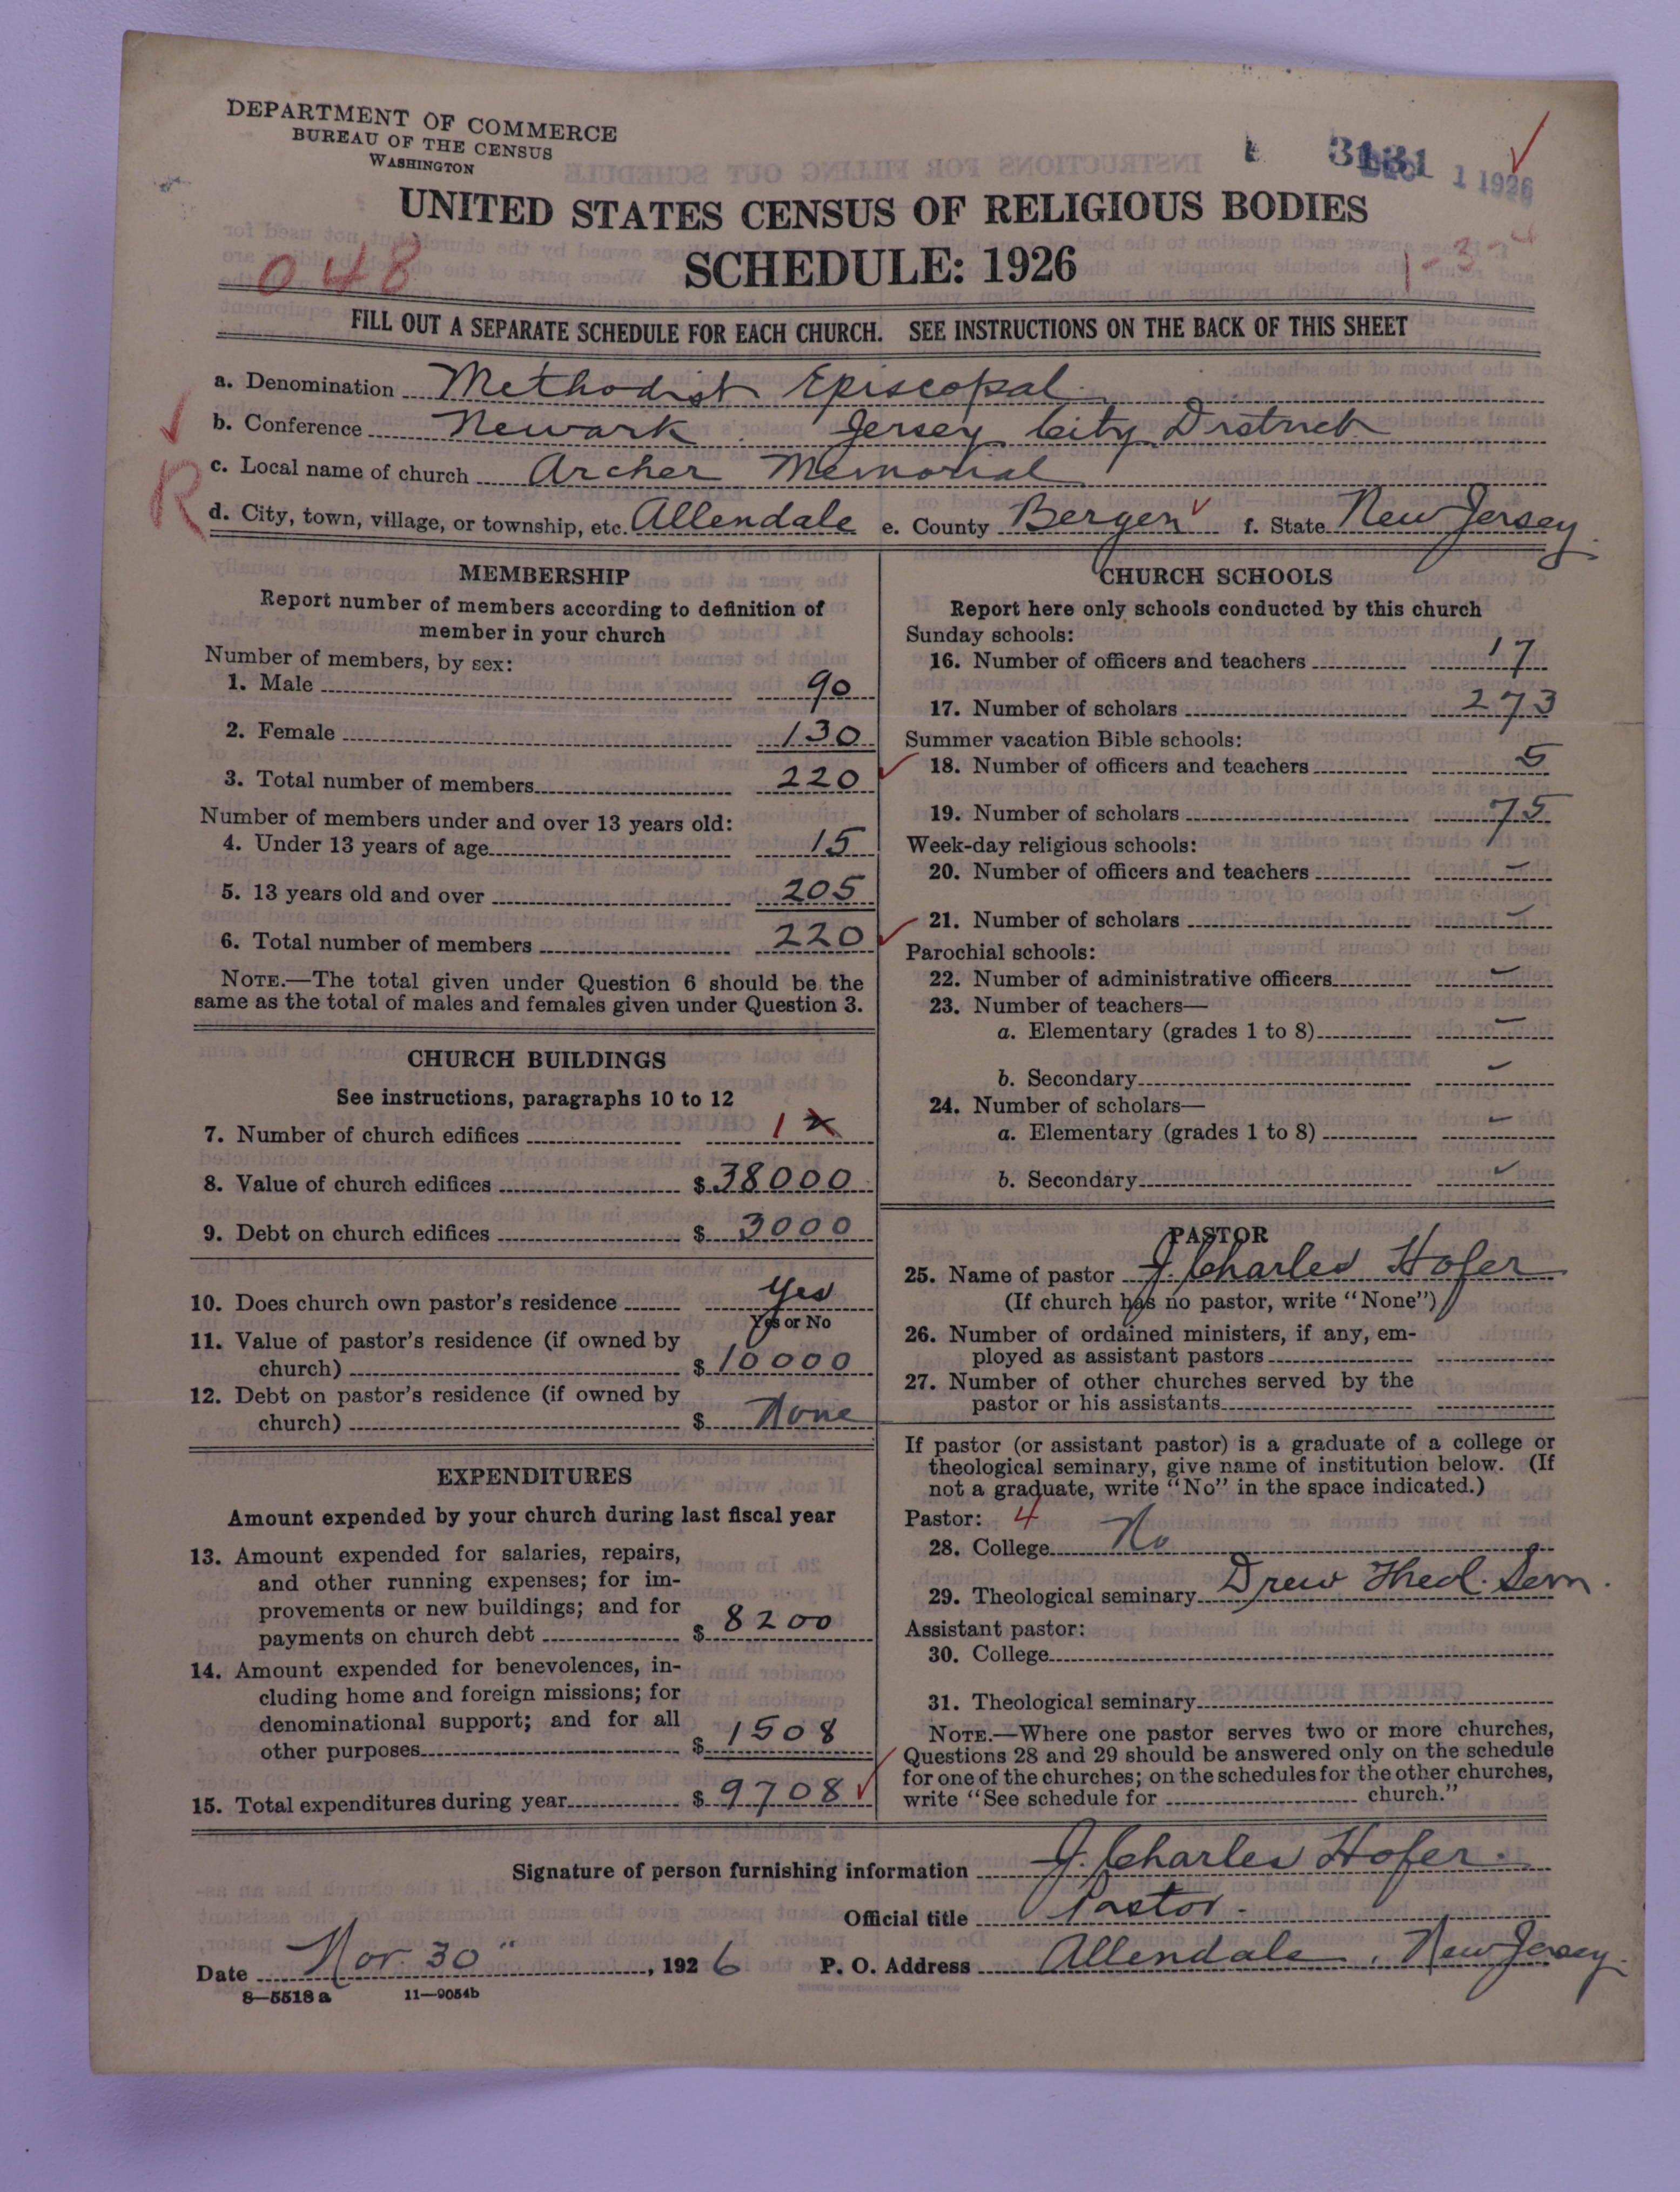 DEPARTMENT OF COMMERCE
BUREAU OF THE CENSUS
WASHINGTON
1 1926
UNITED STATES CENSUS OF RELIGIOUS BODIES
SCHEDULE: 1926
048
1-3-4
FILL OUT A SEPARATE SCHEDULE FOR EACH CHURCH. SEE INSTRUCTIONS ON THE BACK OF THIS SHEET
a. Denomination Methodist Episcopal
b. Conference Newark Jersey City District
R
c. Local name of church Archer Memorial
d. City, town, village, or township, etc. Allendale e. County Bergen f. State New Jersey
MEMBERSHIP
Report number of members according to definition of
member in your church
Number of members, by sex:
1. Male 90
2. Female 130
3. Total number of members 220
Number of members under and over 13 years old:
4. Under 13 years of age 15
5. 13 years old and over 205
6. Total number of members 220
NOTE.—The total given under Question 6 should be the
same as the total of males and females given under Question 3.
CHURCH BUILDINGS
See instructions, paragraphs 10 to 12
7. Number of church edifices 1
8. Value of church edifices $ 38000
9. Debt on church edifices $ 3000
10. Does church own pastor's residence Yes
Yes or No
11. Value of pastor's residence (if owned by
church) $ 10000
12. Debt on pastor's residence (if owned by
church) $ None
EXPENDITURES
Amount expended by your church during last fiscal year
13. Amount expended for salaries, repairs,
and other running expenses; for im-
provements or new buildings; and for
payments on church debt $ 8200
14. Amount expended for benevolences, in-
cluding home and foreign missions; for
denominational support; and for all
other purposes $ 1508
15. Total expenditures during year $ 9708
CHURCH SCHOOLS
Report here only schools conducted by this church
Sunday schools:
16. Number of officers and teachers 17
17. Number of scholars 273
Summer vacation Bible schools:
18. Number of officers and teachers 5
19. Number of scholars 75
Week-day religious schools:
20. Number of officers and teachers –
21. Number of scholars –
Parochial schools:
22. Number of administrative officers –
23. Number of teachers—
a. Elementary (grades 1 to 8) –
b. Secondary –
24. Number of scholars—
a. Elementary (grades 1 to 8) –
b. Secondary –
PASTOR
25. Name of pastor J. Charles Hofer
(If church has no pastor, write "None")
26. Number of ordained ministers, if any, em-
ployed as assistant pastors
27. Number of other churches served by the
pastor or his assistants
If pastor (or assistant pastor) is a graduate of a college or
theological seminary, give name of institution below. (If
not a graduate, write "No" in the space indicated.)
Pastor: 4
28. College No
29. Theological seminary Drew Theol. Sem.
Assistant pastor:
30. College
31. Theological seminary
NOTE.—Where one pastor serves two or more churches,
Questions 28 and 29 should be answered only on the schedule
for one of the churches; on the schedules for the other churches,
write "See schedule for church."
Signature of person furnishing information J. Charles Hofer.
Official title Pastor.
Date Nov. 30", 1926 P. O. Address Allendale, New Jersey.
8—5518 a 11—9054b